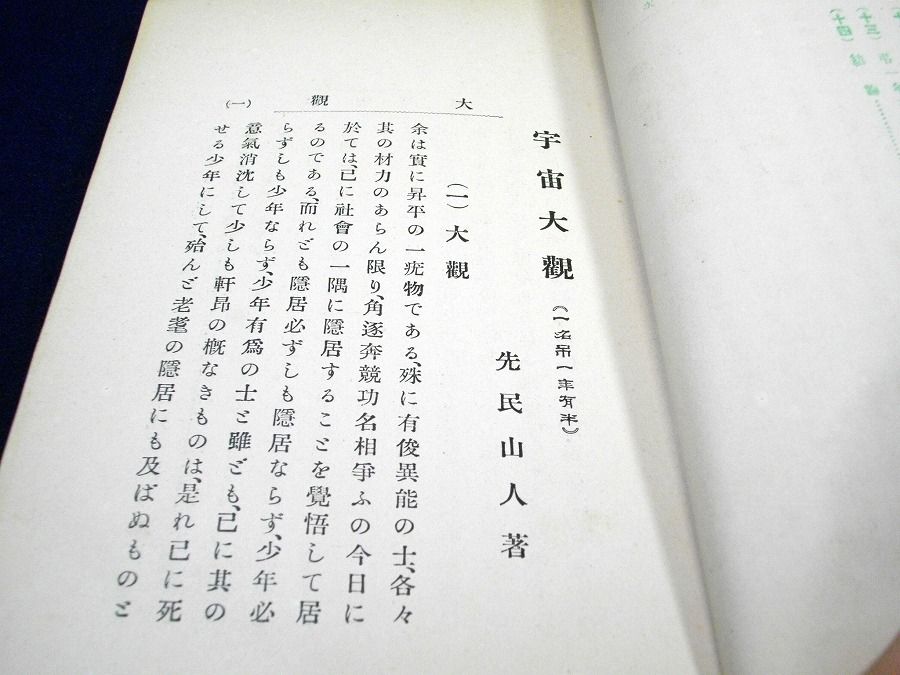 宇宙大觀（一名吊一年有半）
先民山人著
（一）大觀
余は實に昇平の一疣物である、殊に有俊異能の士、各々
其の材力のあらん限り、角逐奔競功名相爭ふの今日に
於ては、已に社會の一隅に隱居することを覺悟して居
るのである、而れども隱居必ずしも隱居ならず、少年必
らずしも少年ならず、少年有爲の士と雖ども、已に其の
意氣消沈して少しも軒昂の槪なきものは、是れ已に死
せる少年にして、殆んど老耄の隱居にも及ばぬものと
大觀
（一）
（十三）
（十四）